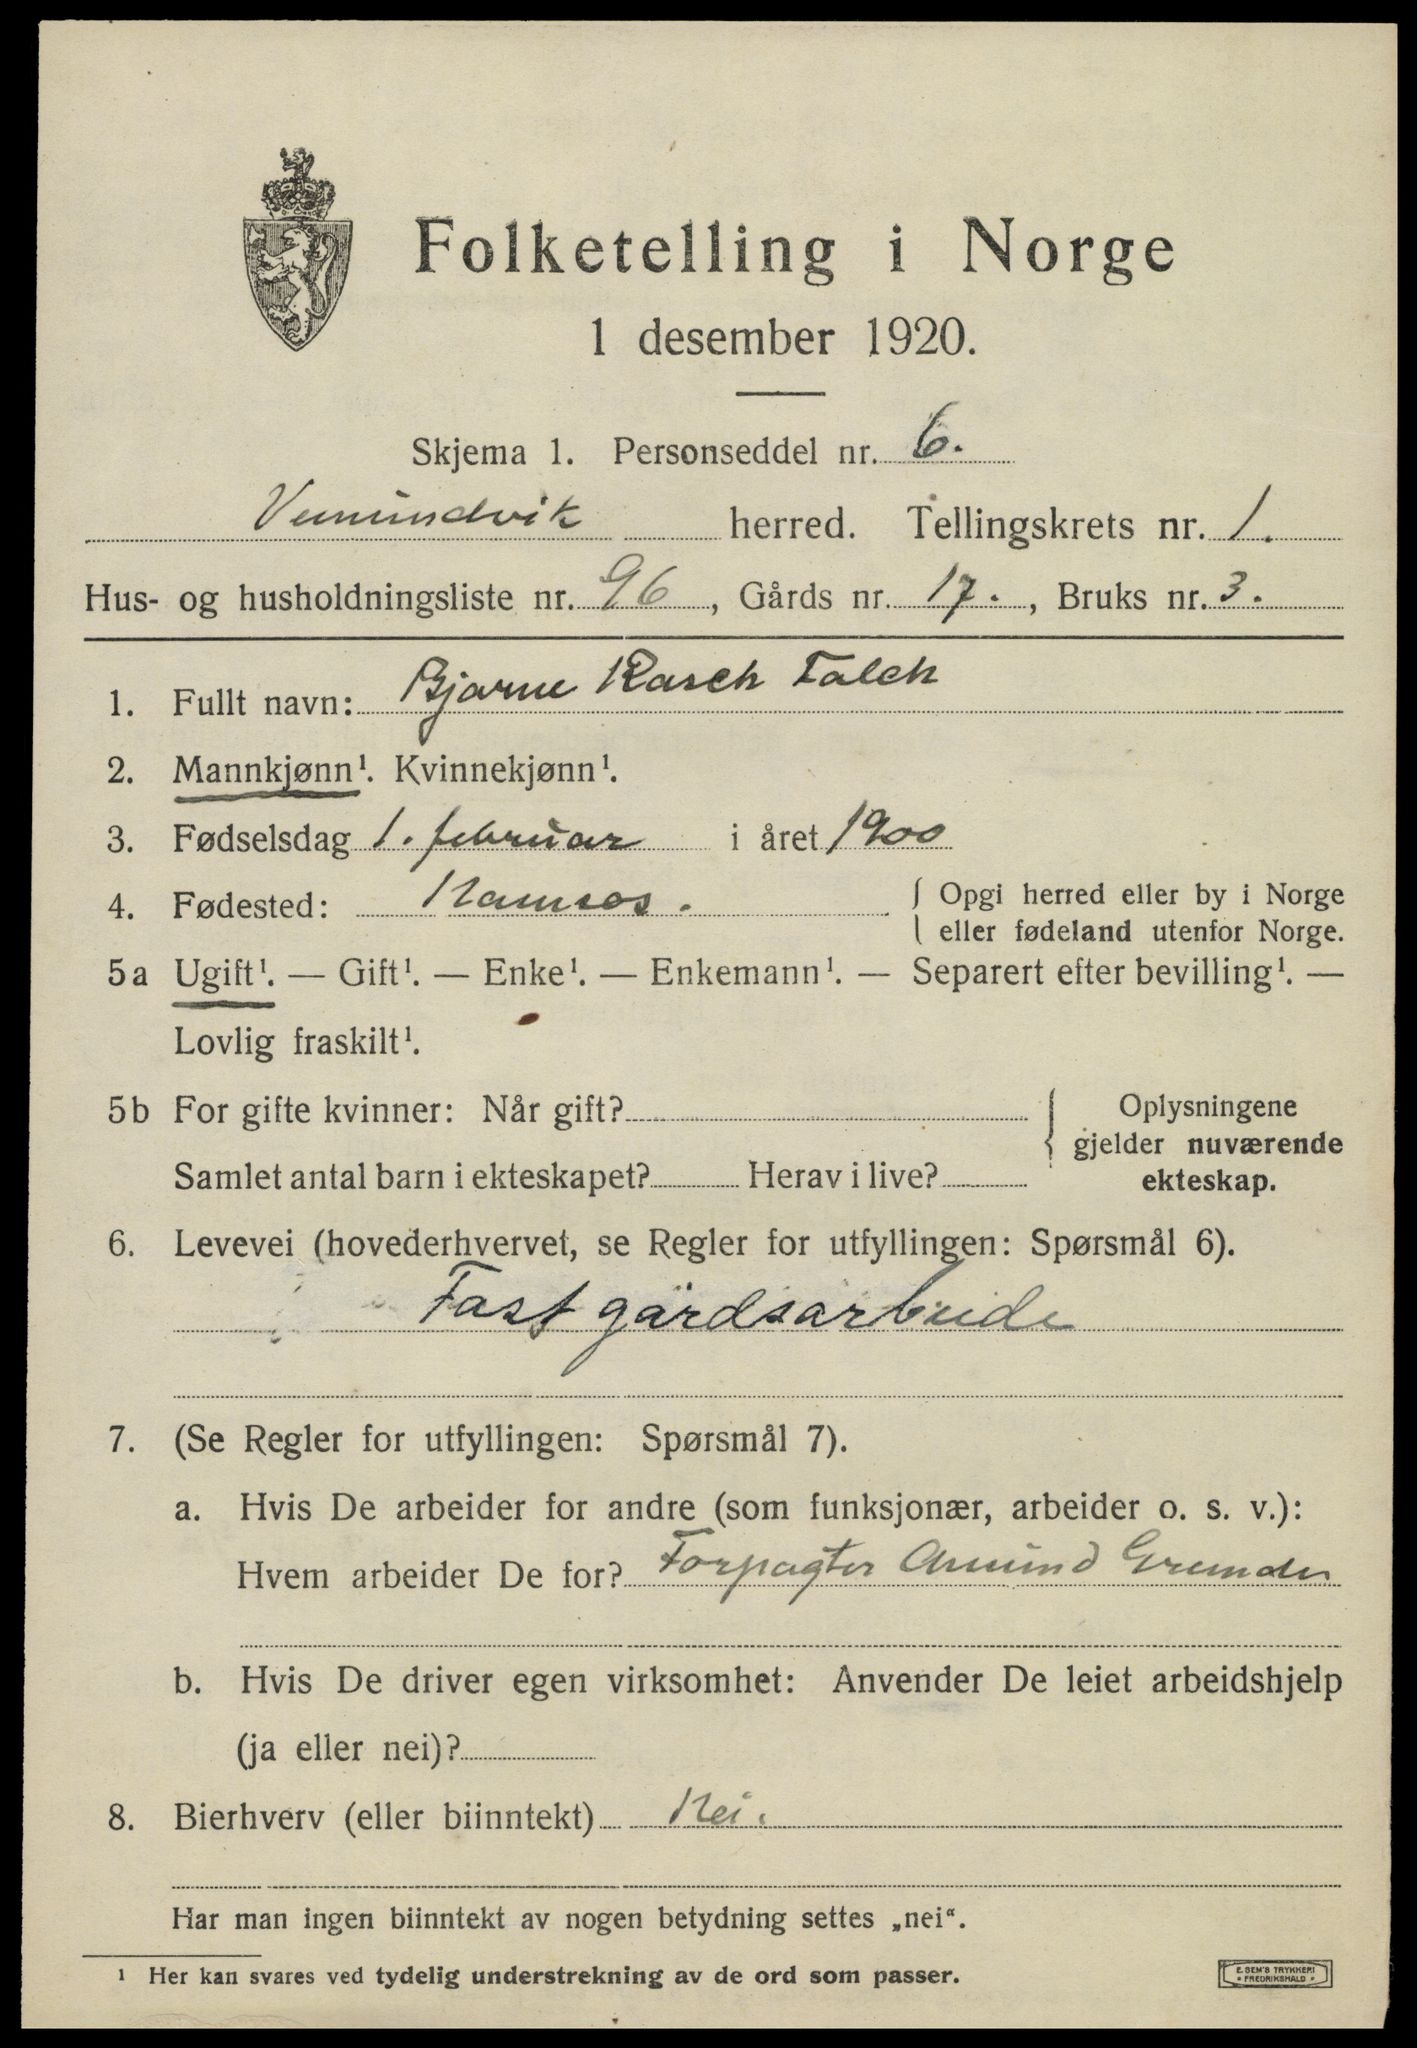 Folketelling i Norge
1 desember 1920.
Skjema 1. Personseddel nr. 6.
Vemundvik herred. Tellingskrets nr. 1.
Hus- og husholdningsliste nr. 96, Gårds nr. 17., Bruks nr. 3.
1. Fullt navn: Bjarne Rasch Falch
2. Mannkjønn¹. Kvinnekjønn¹.
3. Fødselsdag 1. februar i året 1900
4. Fødested: Namsos. { Opgi herred eller by i Norge
eller fødeland utenfor Norge.
5a Ugift¹. — Gift¹. — Enke¹. — Enkemann¹. — Separert efter bevilling¹. —
Lovlig fraskilt¹.
5b For gifte kvinner: Når gift? { Oplysningene
gjelder nuværende
Samlet antal barn i ekteskapet? Herav i live? ekteskap.
6. Levevei (hovederhvervet, se Regler for utfyllingen: Spørsmål 6).
Fast gårdsarbeide
7. (Se Regler for utfyllingen: Spørsmål 7).
a. Hvis De arbeider for andre (som funksjonær, arbeider o. s. v.):
Hvem arbeider De for? Forpagter Amund
b. Hvis De driver egen virksomhet: Anvender De leiet arbeidshjelp
(ja eller nei)?
8. Bierhverv (eller biinntekt) Nei.
Har man ingen biinntekt av nogen betydning settes „nei“.
¹ Her kan svares ved tydelig understrekning av de ord som passer.
E. SEM'S TRYKKERI
FREDRIKSHALD